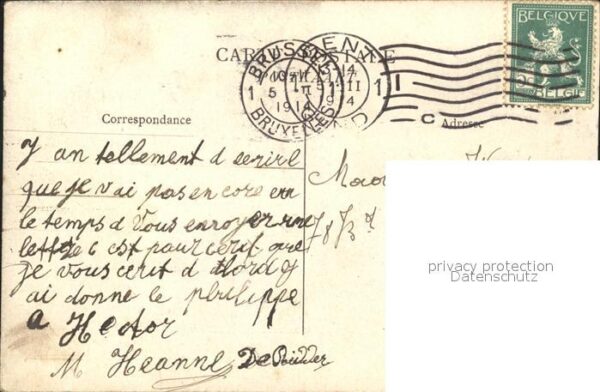 CARTE POSTALE
BRUSSEL
BRUXELLES
1914
GENT
1 1
BELGIQUE
BELGIË
Correspondance
Adresse
y an tellement d serire
que je vai pas encore eu
le temps d Vous envoyer une
lettre c est pour cerit que
je vous cerit d abord y
ai donne le philippe
a Hector
M Heanne De Ridder
78/3
privacy protection
Datenschutz